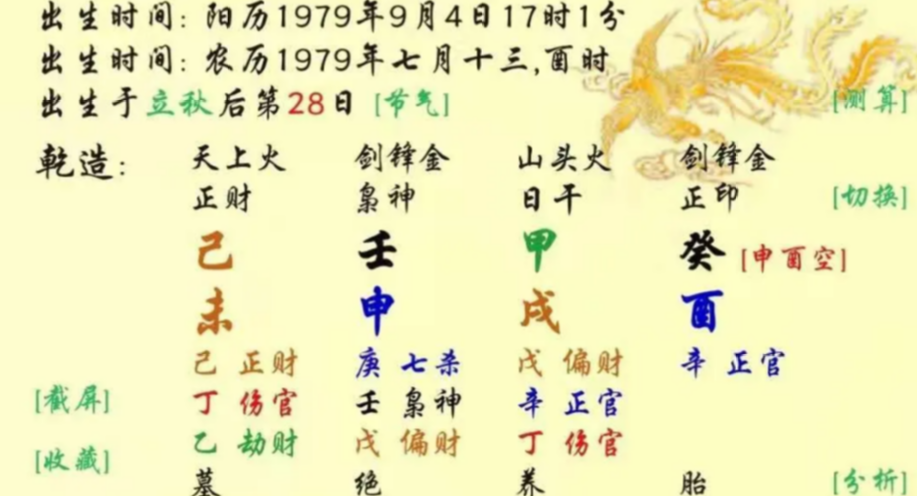 出生时间: 阳历1979年9月4日17时1分
出生时间: 农历1979年七月十三,酉时
出生于立秋后第28日 [节气] [测算]
乾造: 天上火 剑锋金 山头火 剑锋金
正财 枭神 日干 正印 [切换]
己 壬 甲 癸 [申酉空]
未 申 戌 酉
己 正财 庚 七杀 戊 偏财 辛 正官
[截屏] 丁 伤官 壬 枭神 辛 正官
[收藏] 乙 劫财 戊 偏财 丁 伤官
墓 绝 养 胎 [分析]